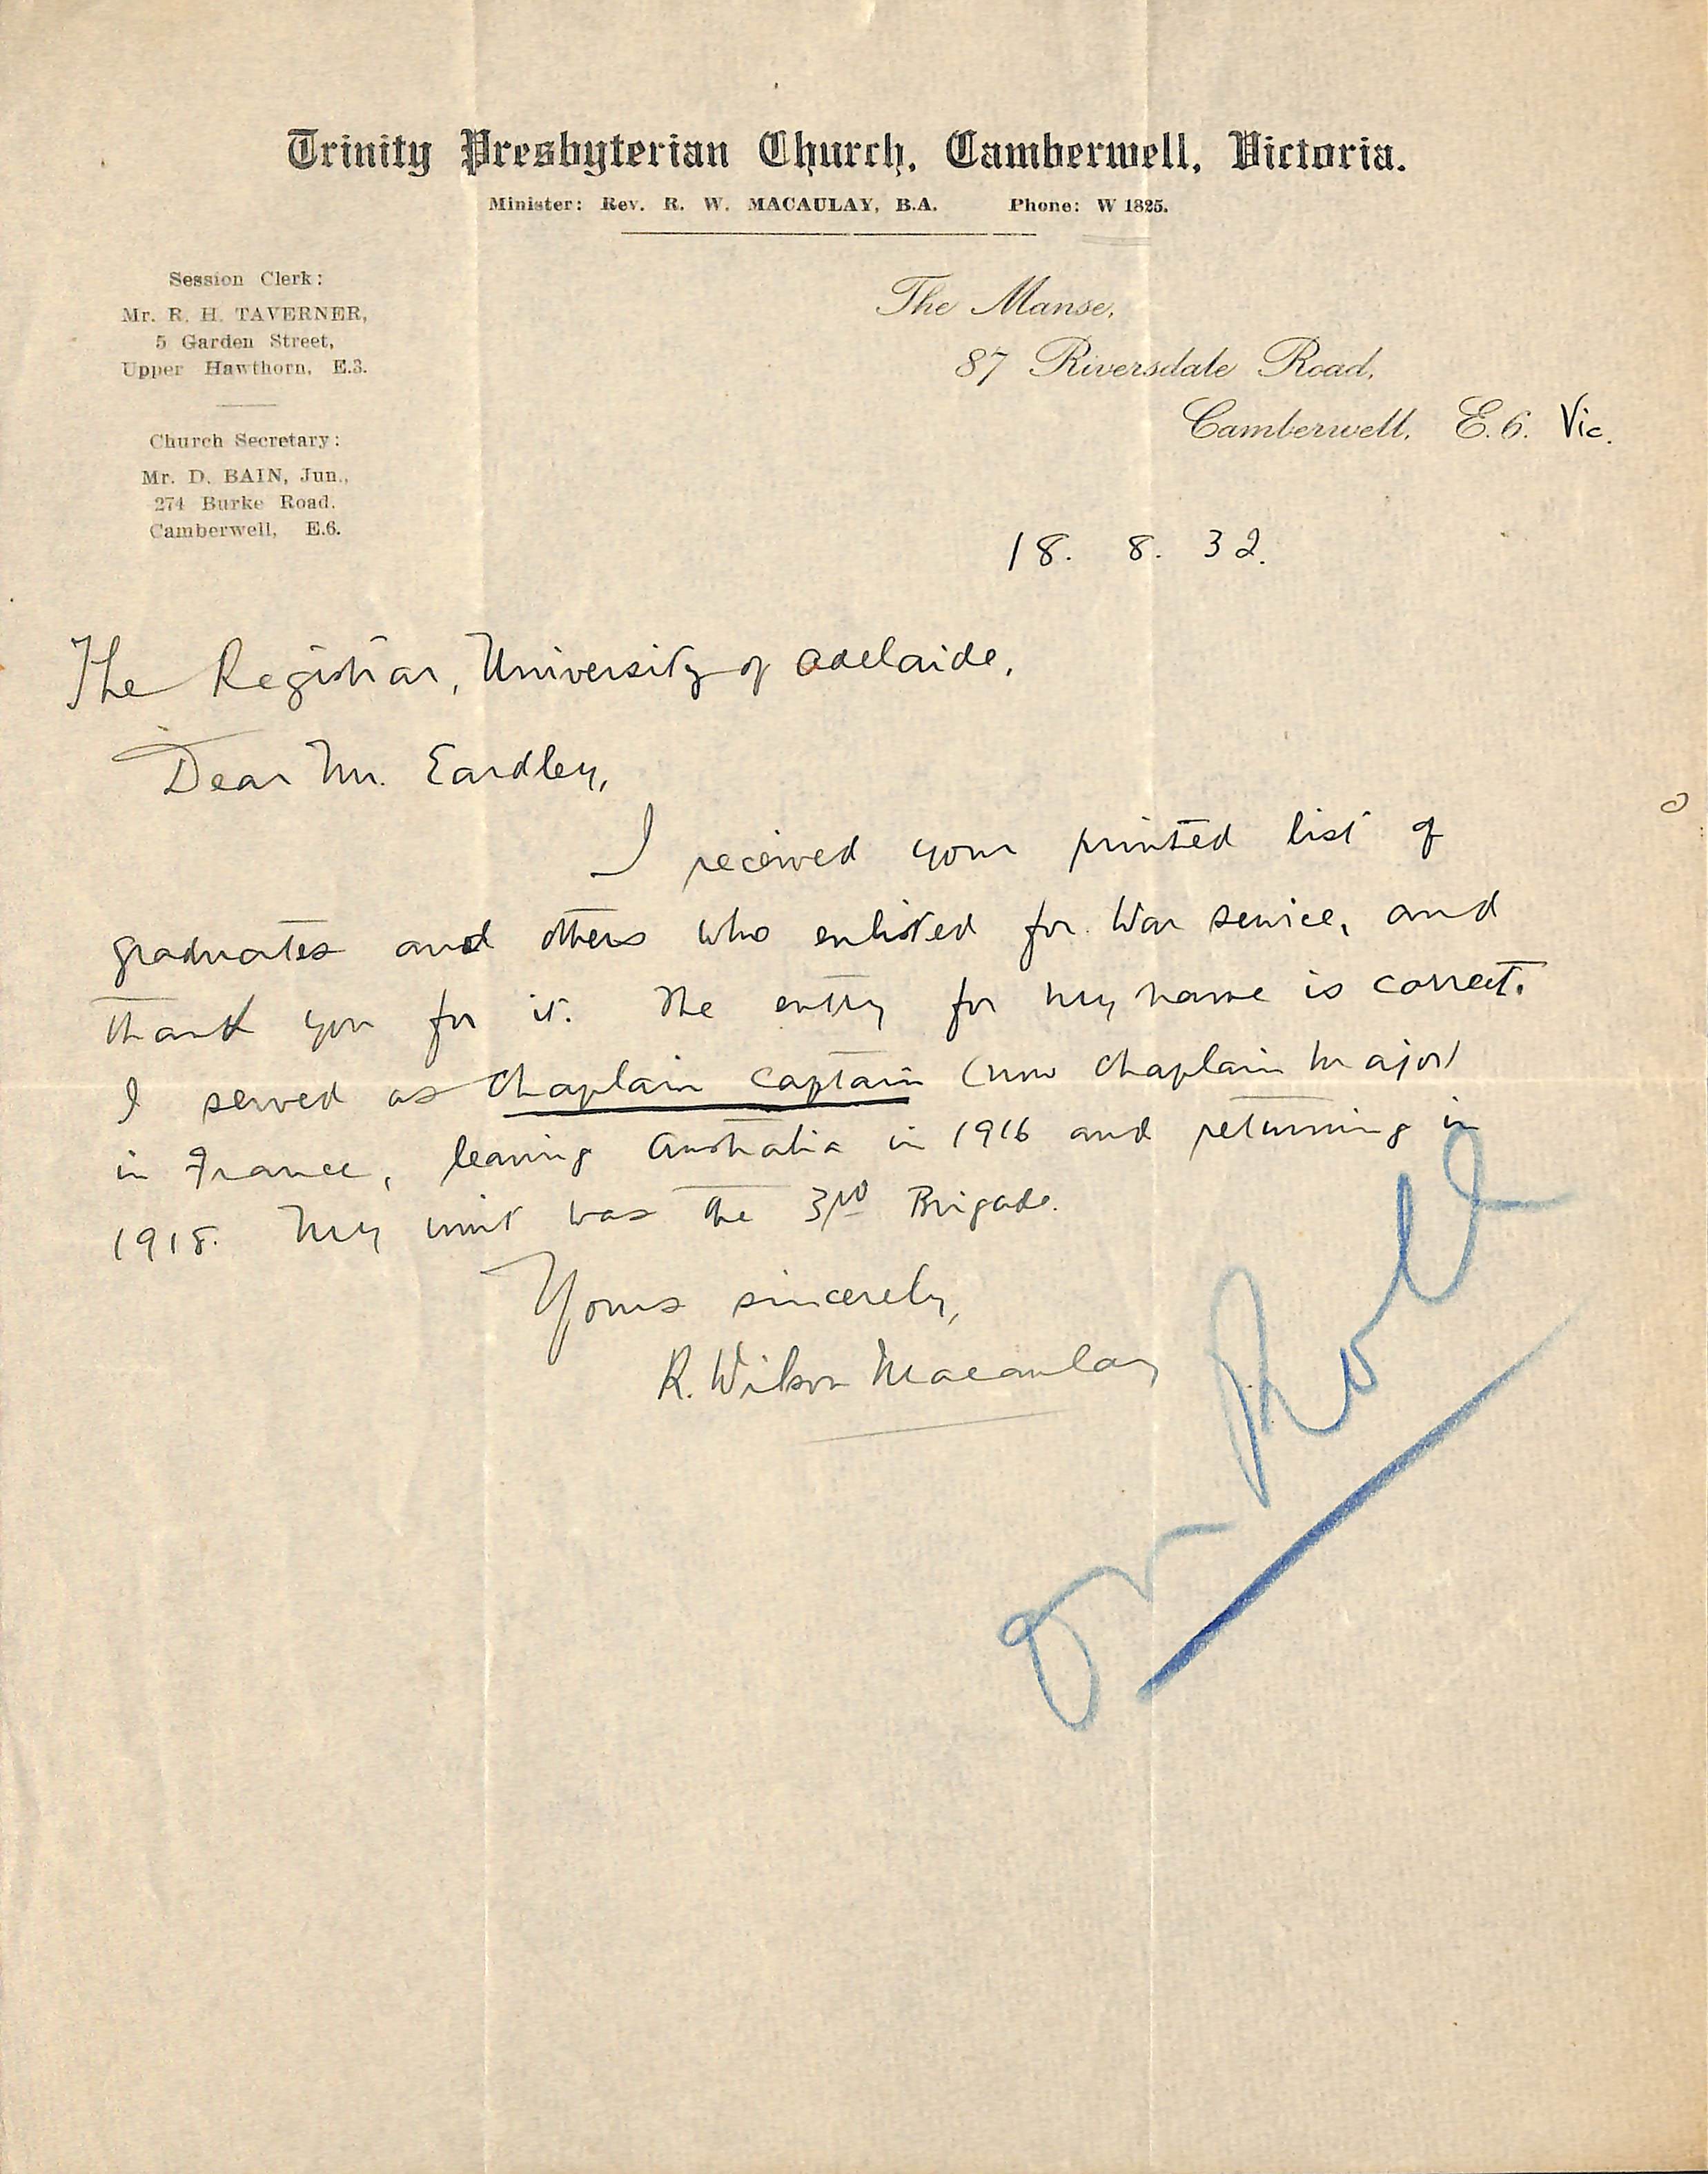 Trinity Presbyterian Church, Camberwell, Victoria.
Minister: Rev. R. W. MACAULAY, B.A. Phone: W 1825.
Session Clerk:
Mr. R. H. TAVERNER,
5 Garden Street,
Upper Hawthorn, E.3.
Church Secretary:
Mr. D. BAIN, Jun.,
274 Burke Road.
Camberwell, E.6.
The Manse,
87 Riversdale Road,
Camberwell, E.6. Vic.
18. 8. 32.
The Registrar, University of Adelaide,
Dear Mr. Eardley,
I received your printed list of
graduates and others who enlisted for War service, and
thank you for it. The entry for my name is correct.
I served as Chaplain Captain (now Chaplain Major)
in France, leaving Australia in 1916 and returning in
1918. My unit was the 3rd Brigade.
Yours sincerely,
R. Wilson Macaulay
On Roll